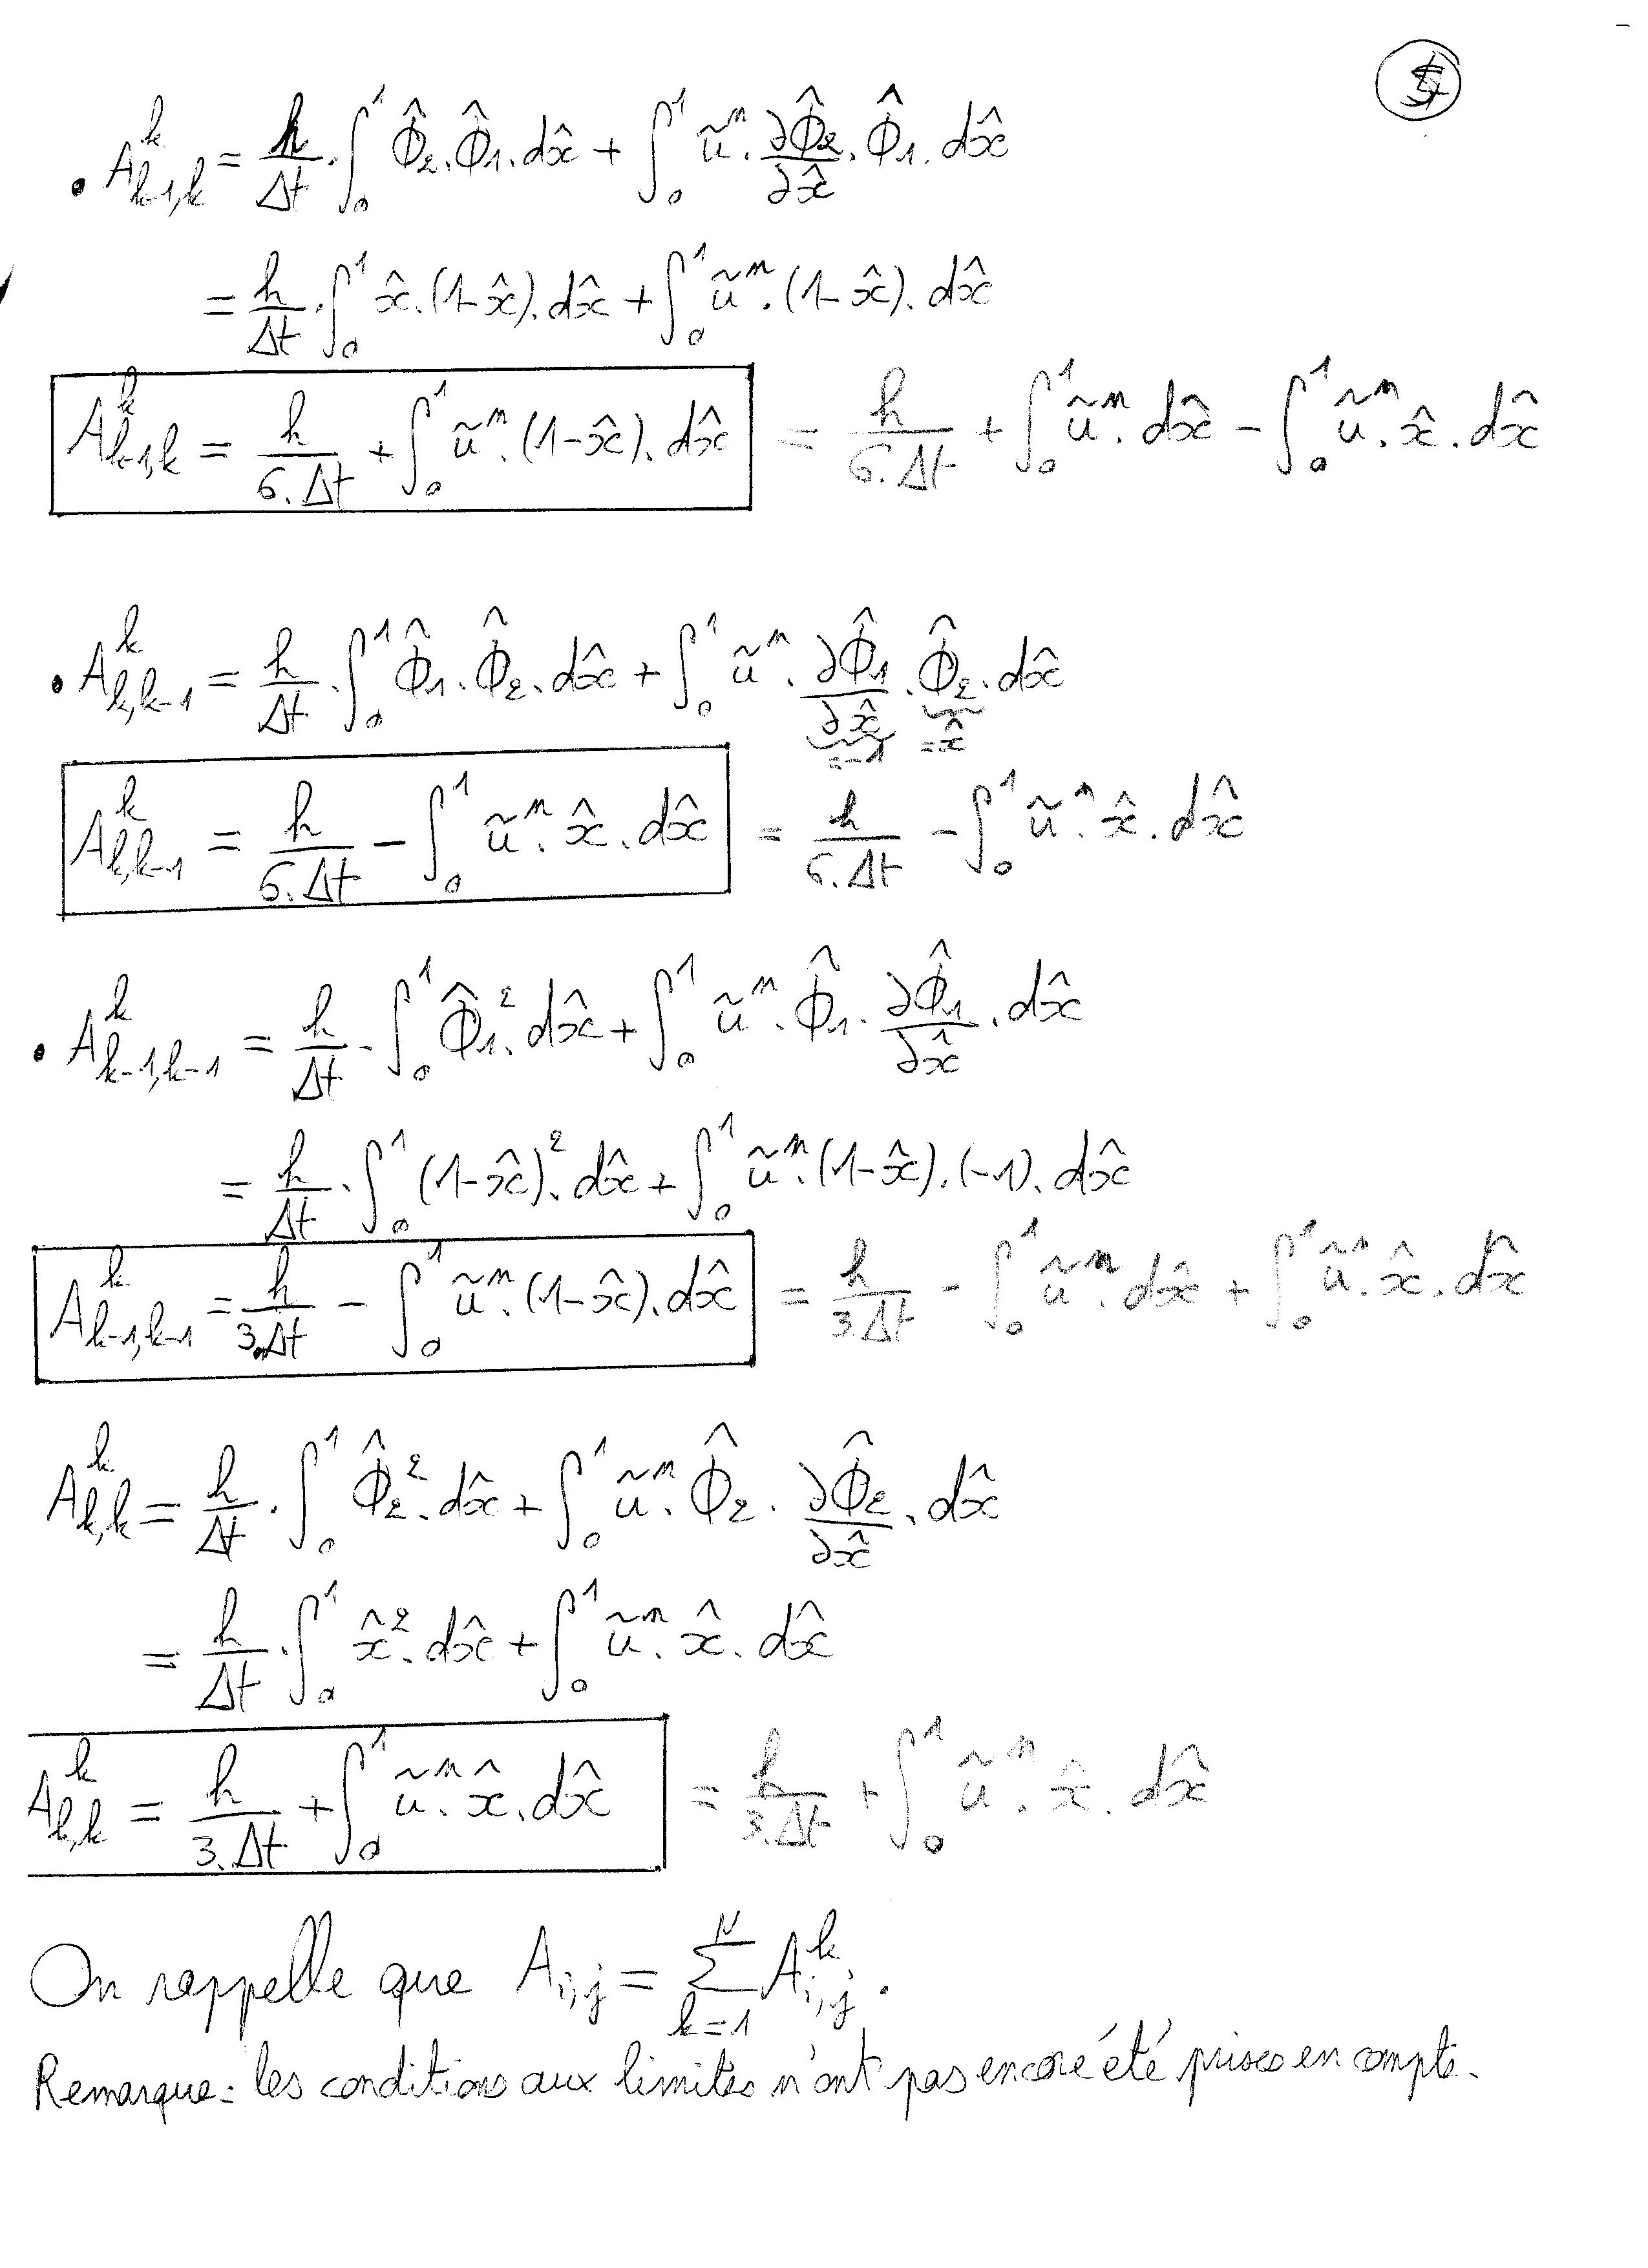 • A^k_{k-1,k} = h/Δt . ∫_0^1 Φ̂_2 . Φ̂_1 . dx̂ + ∫_0^1 ũ^n . ∂Φ̂_2/∂x̂ . Φ̂_1 . dx̂
= h/Δt . ∫_0^1 x̂ . (1-x̂) . dx̂ + ∫_0^1 ũ^n . (1-x̂) . dx̂
A^k_{k-1,k} = h/(6.Δt) + ∫_0^1 ũ^n . (1-x̂) . dx̂ = h/(6.Δt) + ∫_0^1 ũ^n . dx̂ - ∫_0^1 ũ^n . x̂ . dx̂
• A^k_{k,k-1} = h/Δt . ∫_0^1 Φ̂_1 . Φ̂_2 . dx̂ + ∫_0^1 ũ^n . ∂Φ̂_1/∂x̂ . Φ̂_2 . dx̂
=-1 =x̂
A^k_{k,k-1} = h/(6.Δt) - ∫_0^1 ũ^n . x̂ . dx̂ = h/(6.Δt) - ∫_0^1 ũ^n . x̂ . dx̂
• A^k_{k-1,k-1} = h/Δt . ∫_0^1 Φ̂_1^2 . dx̂ + ∫_0^1 ũ^n . Φ̂_1 . ∂Φ̂_1/∂x̂ . dx̂
= h/Δt . ∫_0^1 (1-x̂)^2 . dx̂ + ∫_0^1 ũ^n . (1-x̂) . (-1) . dx̂
A^k_{k-1,k-1} = h/(3.Δt) - ∫_0^1 ũ^n . (1-x̂) . dx̂ = h/(3.Δt) - ∫_0^1 ũ^n . dx̂ + ∫_0^1 ũ^n . x̂ . dx̂
A^k_{k,k} = h/Δt . ∫_0^1 Φ̂_2^2 . dx̂ + ∫_0^1 ũ^n . Φ̂_2 . ∂Φ̂_2/∂x̂ . dx̂
= h/Δt . ∫_0^1 x̂^2 . dx̂ + ∫_0^1 ũ^n . x̂ . dx̂
A^k_{k,k} = h/(3.Δt) + ∫_0^1 ũ^n . x̂ . dx̂ = h/(3.Δt) + ∫_0^1 ũ^n . x̂ . dx̂
On rappelle que A_{i,j} = Σ_{k=1}^N A^k_{i,j} .
Remarque : les conditions aux limites n'ont pas encore été prises en compte.